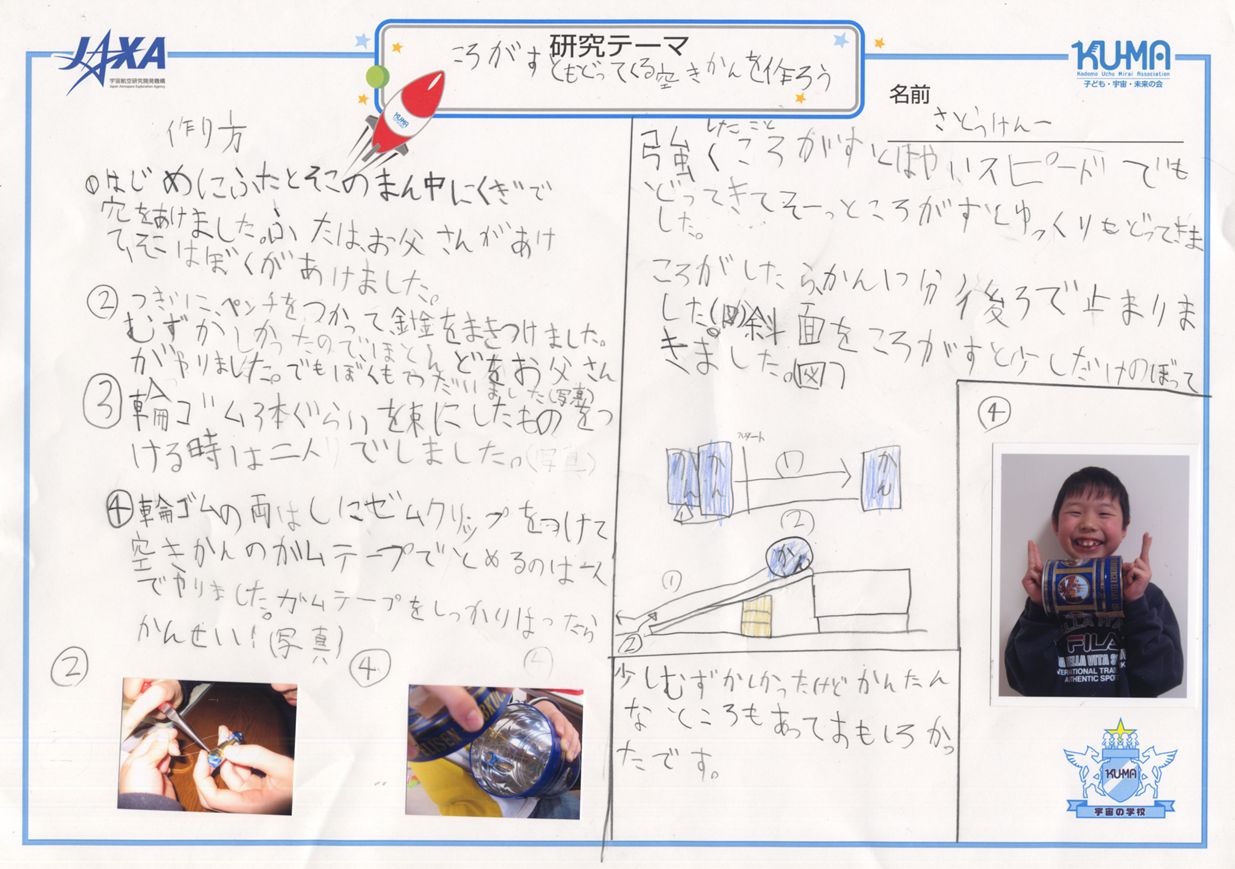 JAXA
宇宙航空研究開発機構
Japan Aerospace Exploration Agency
研究テーマ
ころがすともどってくる空きかんを作ろう
KUMA
KU-MA
Kodomo Uchu Mirai Association
子ども・宇宙・未来の会
名前
さとうけんー
作り方
①はじめにふたとそこのまん中にくぎで
穴をあけました。ふたはお父さんがあけ
て、そこはぼくがあけました。
②つぎに、ペンチをつかって、針金をまきつけました。
むずかしかったのでほとんどをお父さん
がやりました。でもぼくもてつだいました(写真)
③輪ゴム3本ぐらいを束にしたものをつ
ける時は二人でしました。(写真)
④輪ゴムの両はしにゼムクリップをつけて
空きかんのガムテープでとめるのは一人
でやりました。ガムテープをしっかりはったら
かんせい!(写真)
②
④
④
したこと
強くころがすとはやいスピードでも
どってきてそーっところがすとゆっくりもどってきま
した。
ころがしたらかん1つ分後ろで止まりま
した。(図)斜面をころがすと少しだけのぼって
きました。(図)
かん
かん
スタート
①
かん
②
かん
①
②
少しむずかしかったけどかんたん
なところもあっておもしろかっ
たです。
④
FILA
BELLA VITA
INTERNATIONAL
AUTHENTIC
KU-MA
宇宙の学校